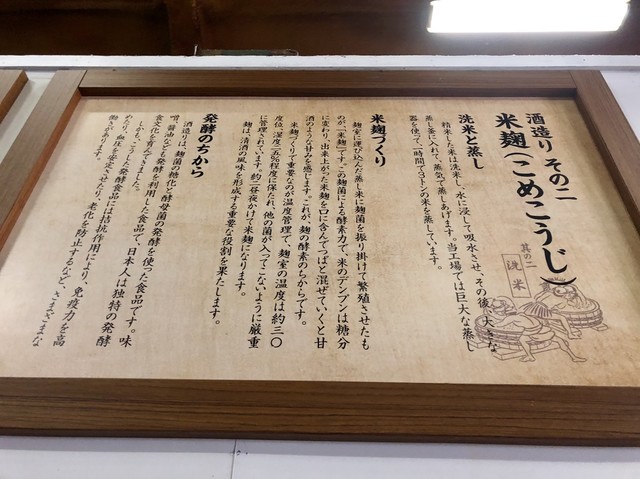 酒造り その二
米麹（こめこうじ）
其の二
洗米
洗米と蒸し
精米した米は洗米し、水に浸して吸水させ、その後、大きな
蒸し釜に入れて、蒸気で蒸しあげます。当工場では巨大な蒸し
器を使って一時間で3トンの米を蒸しています。
米麹づくり
麹室に運び込んだ蒸し米に麹菌を振り掛けて繁殖させたも
のが、「米麹」です。この麹菌による酵素力で、米のデンプンは糖分
に変わり、出来上がった米麹を口に含んでつばと混ぜていくと甘
酒のような甘みを感じます。これが、麹の酵素のちからです。
米麹づくりで重要なのが温度管理で、麹室の温度は約三〇
度位、湿度二五%程度に保たれ、他の菌が入ってこないように厳重
に管理されています。約二昼夜かけて米麹になります。
麹は、清酒の風味を形成する重要な役割を果たします。
発酵のちから
酒造りは、麹菌の糖化と酵母菌の発酵を使った食品です。味
噌、醤油なども発酵を利用した食品で、日本人は独特の発酵
食文化を育んできました。
しかも、こうした発酵食品には拮抗作用により、免疫力を高
めたり、血圧を安定させたり、老化を防止するなど、さまざまな
働きがあります。